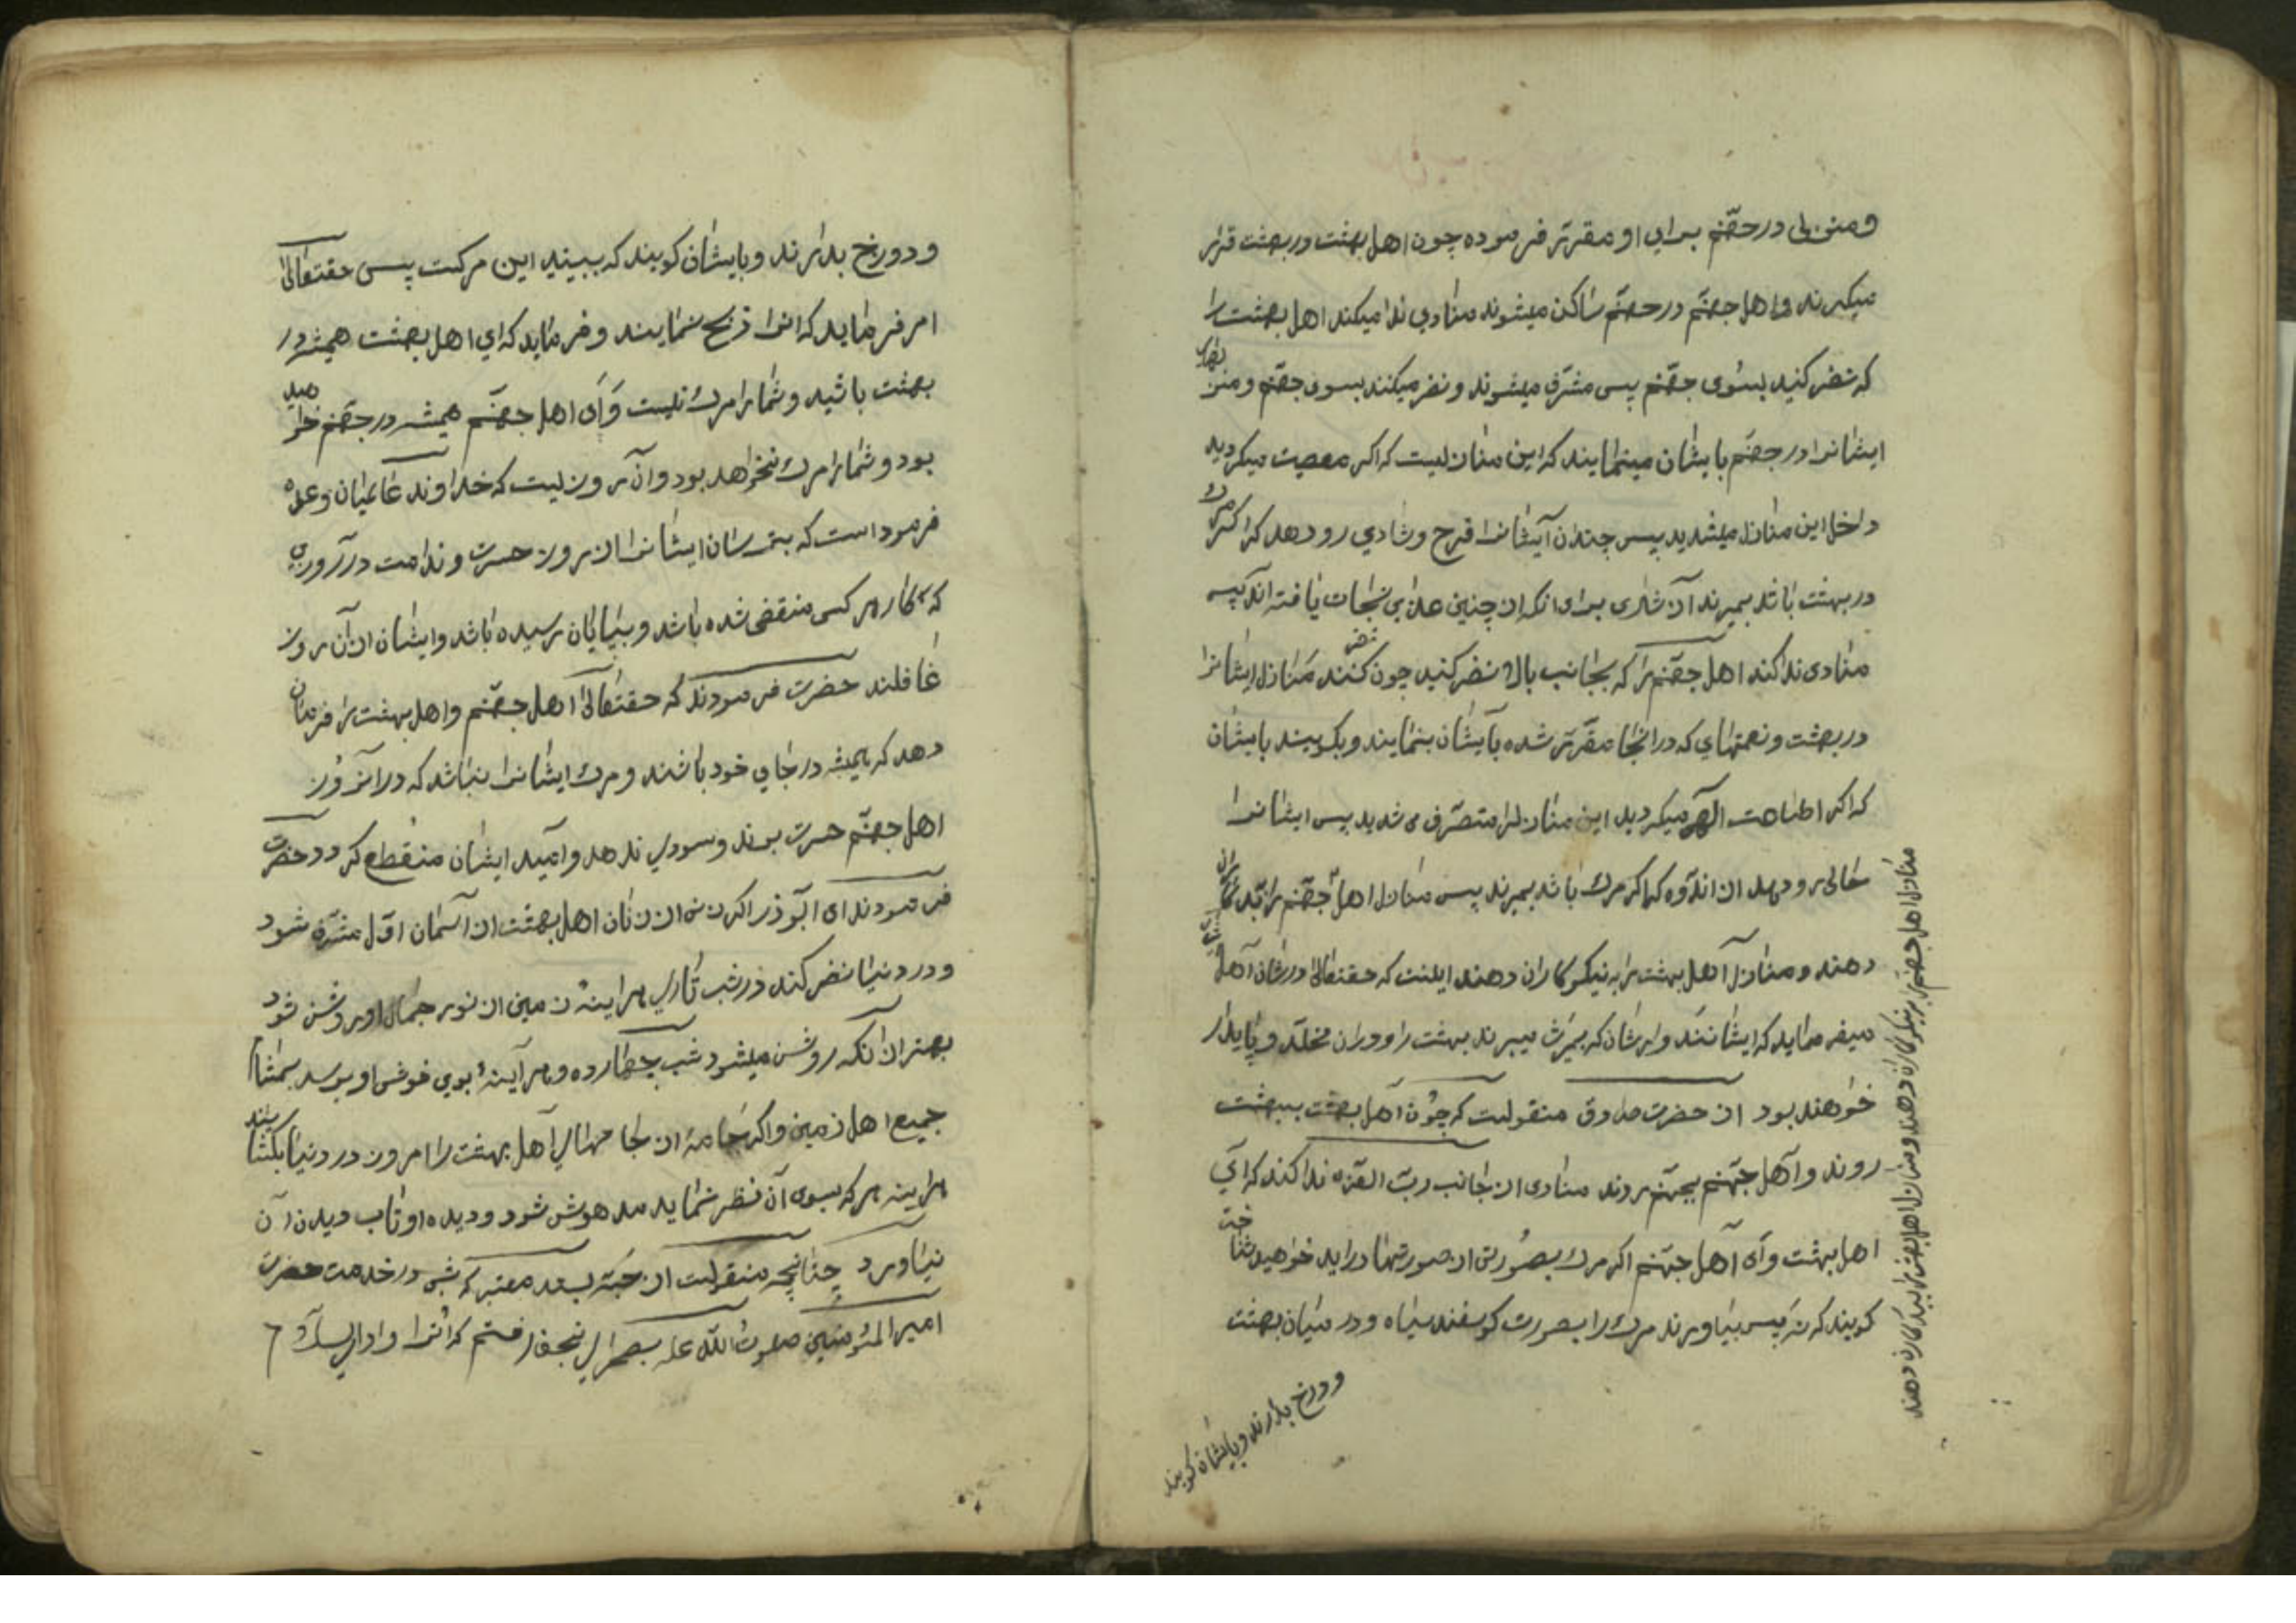 ومنزلی در جهّنم برای او مقرّر فرموده چون اهل بهشت در بهشت قرار
میکیرند و اهل جهنّم در جهنّم ساکن میشوند منادی ندا میکند اهل بهشت را
که نضر کنید بسوی جهّنم پس مشرّف میشوند و نضر میکنند بسوی جهّنم و منزلهای
ایشانرا در جهنّم بایشان مینمایند که این منازلیست که اکر معصیت میکردید
داخل این منازل میشدید پس چندان ایشانرا فرح و شادی رو دهد که اکر مرك
در بهشت باشد بمیرند از شادی برای انکه از چنین عذابی نجات یافته اند پس
منادی ندا کند اهل جهنّم را که بجانب بالا نضر کنید چون نضر کنند منازل ایشانرا
در بهشت و نعمتهای که در انجا مقرّر شده بایشان بنمایند و بکویند بایشان
که اکر اطاعت الهی میکردید این منازل را متصرّف می شدید پس ایشانرا
حالی رو دهد از اندوه که اکر مرك باشد بمیرند پس منازل اهل جهّنم را بد کاران
دهند و منازل اهل بهشت را به نیکو کاران دهند اینست که حقتعالی در شان اهل
میفرماید که ایشانند وارثان که بمیراث میبرند بهشت را و در ان مخلّد و پایدار
خواهند بود از حضرت صادق منقولست که چون اهل بهشت ببهشت
روند و اهل جهّنم بجهنّم روند منادی از جانب ربّ العزه ندا کند که ای
اهل بهشت و ای اهل جهّنم اکر مرك بصورتی از صورتها در اید خواهید شناخت
کویند که نه پس بیاورند مرك را بصورت کوسفند سیاه و در میان بهشت
ودوزخ بدارند وبایشان کویند
منازل اهل جهنّم را به نیکو کاران دهند و منازل اهل بهشت را ببد کاران دهند
و دوزخ بدارند و بایشان کویند که ببینید این مرکست پس حقتعالی
امر فرماید که انرا ذبح نمایند و فرماید که ای اهل بهشت همیشه در
بهشت باشید و شما را مرك نیست و ای اهل جهنّم همیشه در جهّنم خواهید
بود و شما را مرك نخواهد بود و ان روزیست که خداوند عالمیان وعده
فرموداست که بترسان ایشانرا از روز حسرت و ندامت در روزی
که کار هر کسی منقضی شده باشد و بپایان رسیده باشد و ایشان از ان روز
غافلند حضرت فرمودند که حقتعالی اهل جهّنم و اهل بهشت را فرمان
دهد که همیشه در جای خود باشند و مرك ایشانرا نباشد که در انروز
اهل جهنّم حسرت برند و سودی ندهد و امید ایشان منقطع کردد حضرت
فرمودند ای ابوذر اکر زنی از زنان اهل بهشت از اسمان اوّل مشرّف شود
و در دنیا نضر کند در شب تاری هراینه زمین از نور جمال او روشن شود
بهتر از انکه روشن میشود شب چهارده و هر آینه بوی خوش او برسد بمشام
جمیع اهل زمین و اکر جامهٔ از جامهای اهل بهشت را امروز در دنیا بکشایند
هراینه هر که بسوی آن نظر نماید مدهوش شود و دیده او تاب دیدن آن
نیاورد چنانچه منقولست از حبّه بسند معتبر که شبی در خدمت حضرت
امیر المؤمنین صلوت اللّه علیه بصحرای نجف رفتم که انرا وادی السلام